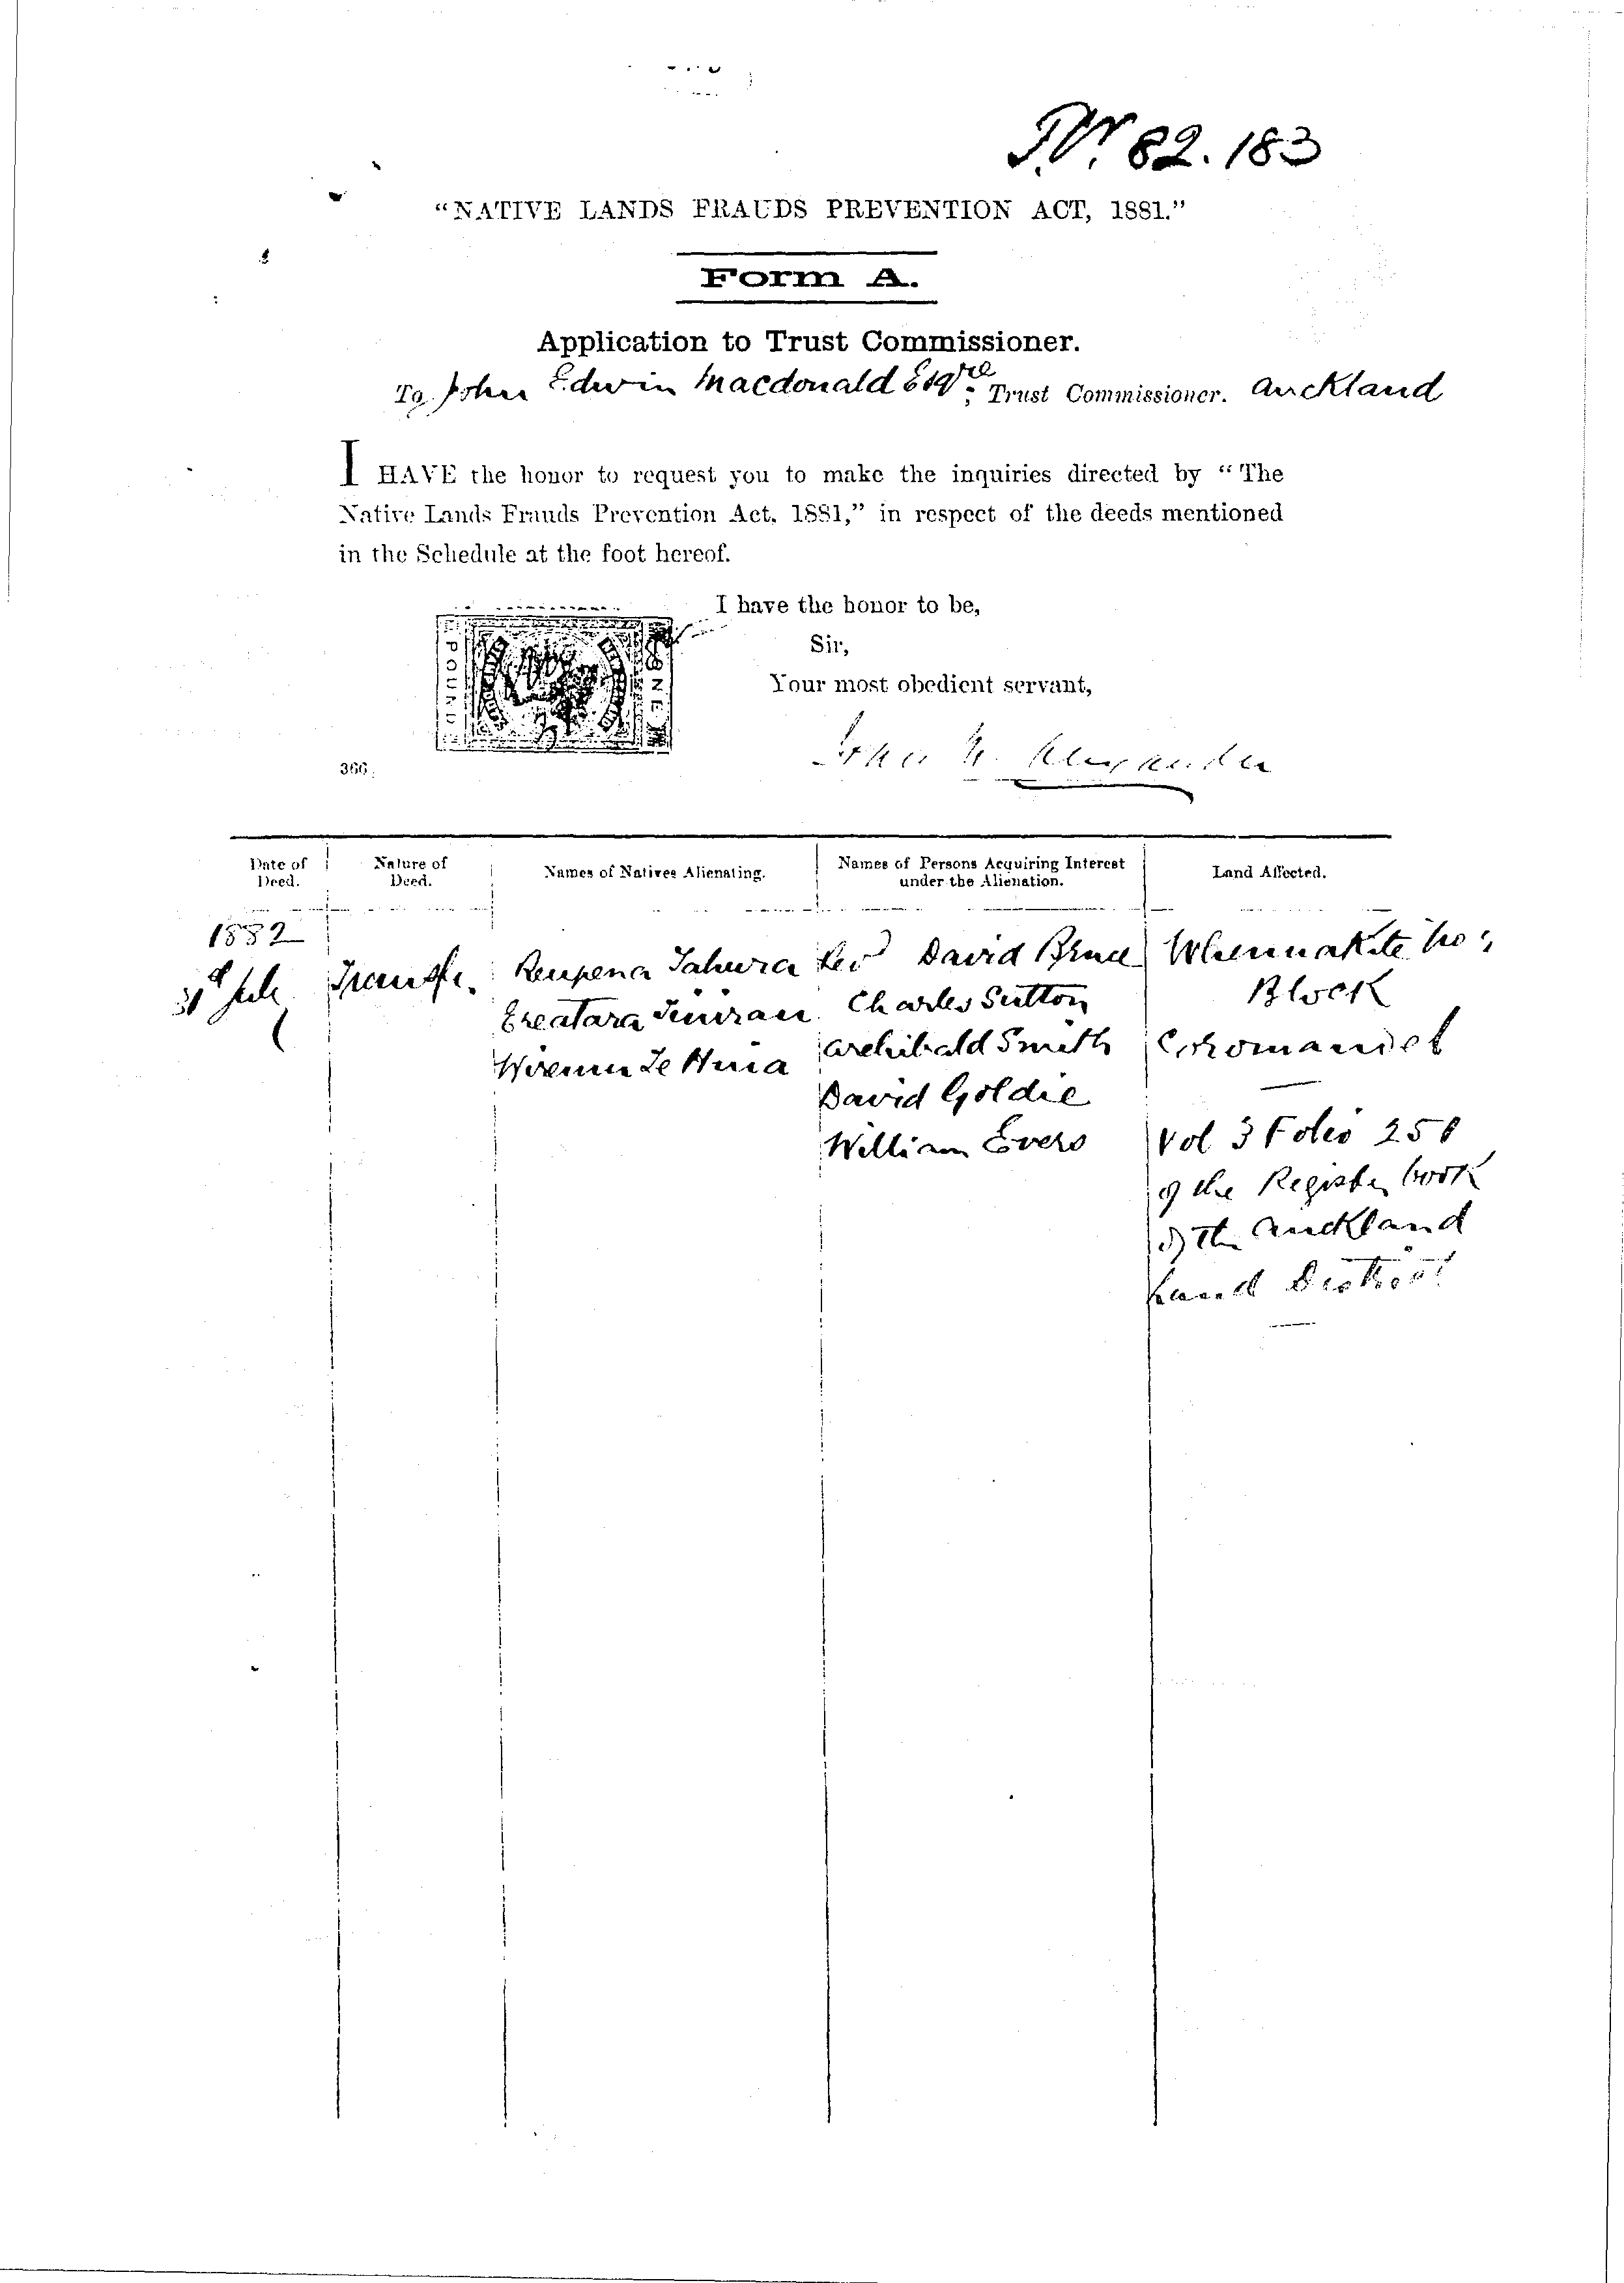 82.183
“NATIVE LANDS FRAUDS PREVENTION ACT, 1881.”
Form A.
Application to Trust Commissioner.
To John Edwin Macdonald Esqre Trust Commissioner. Auckland
I HAVE the honor to request you to make the inquiries directed by “The
Native Lands Frauds Prevention Act, 1881,” in respect of the deeds mentioned
in the Schedule at the foot hereof.
I have the honor to be,
Sir,
Your most obedient servant,
366.
Date of Deed.
Nature of Deed.
Names of Natives Alienating.
Names of Persons Acquiring Interest
under the Alienation.
Land Affected.
1882
Reupena Tahura David
Block
Charles Sutton
Te Huia Archibald Smith Coromandel
David Goldie
William Evers Vol 3 Folio
of the Register book
of the Auckland
Land District